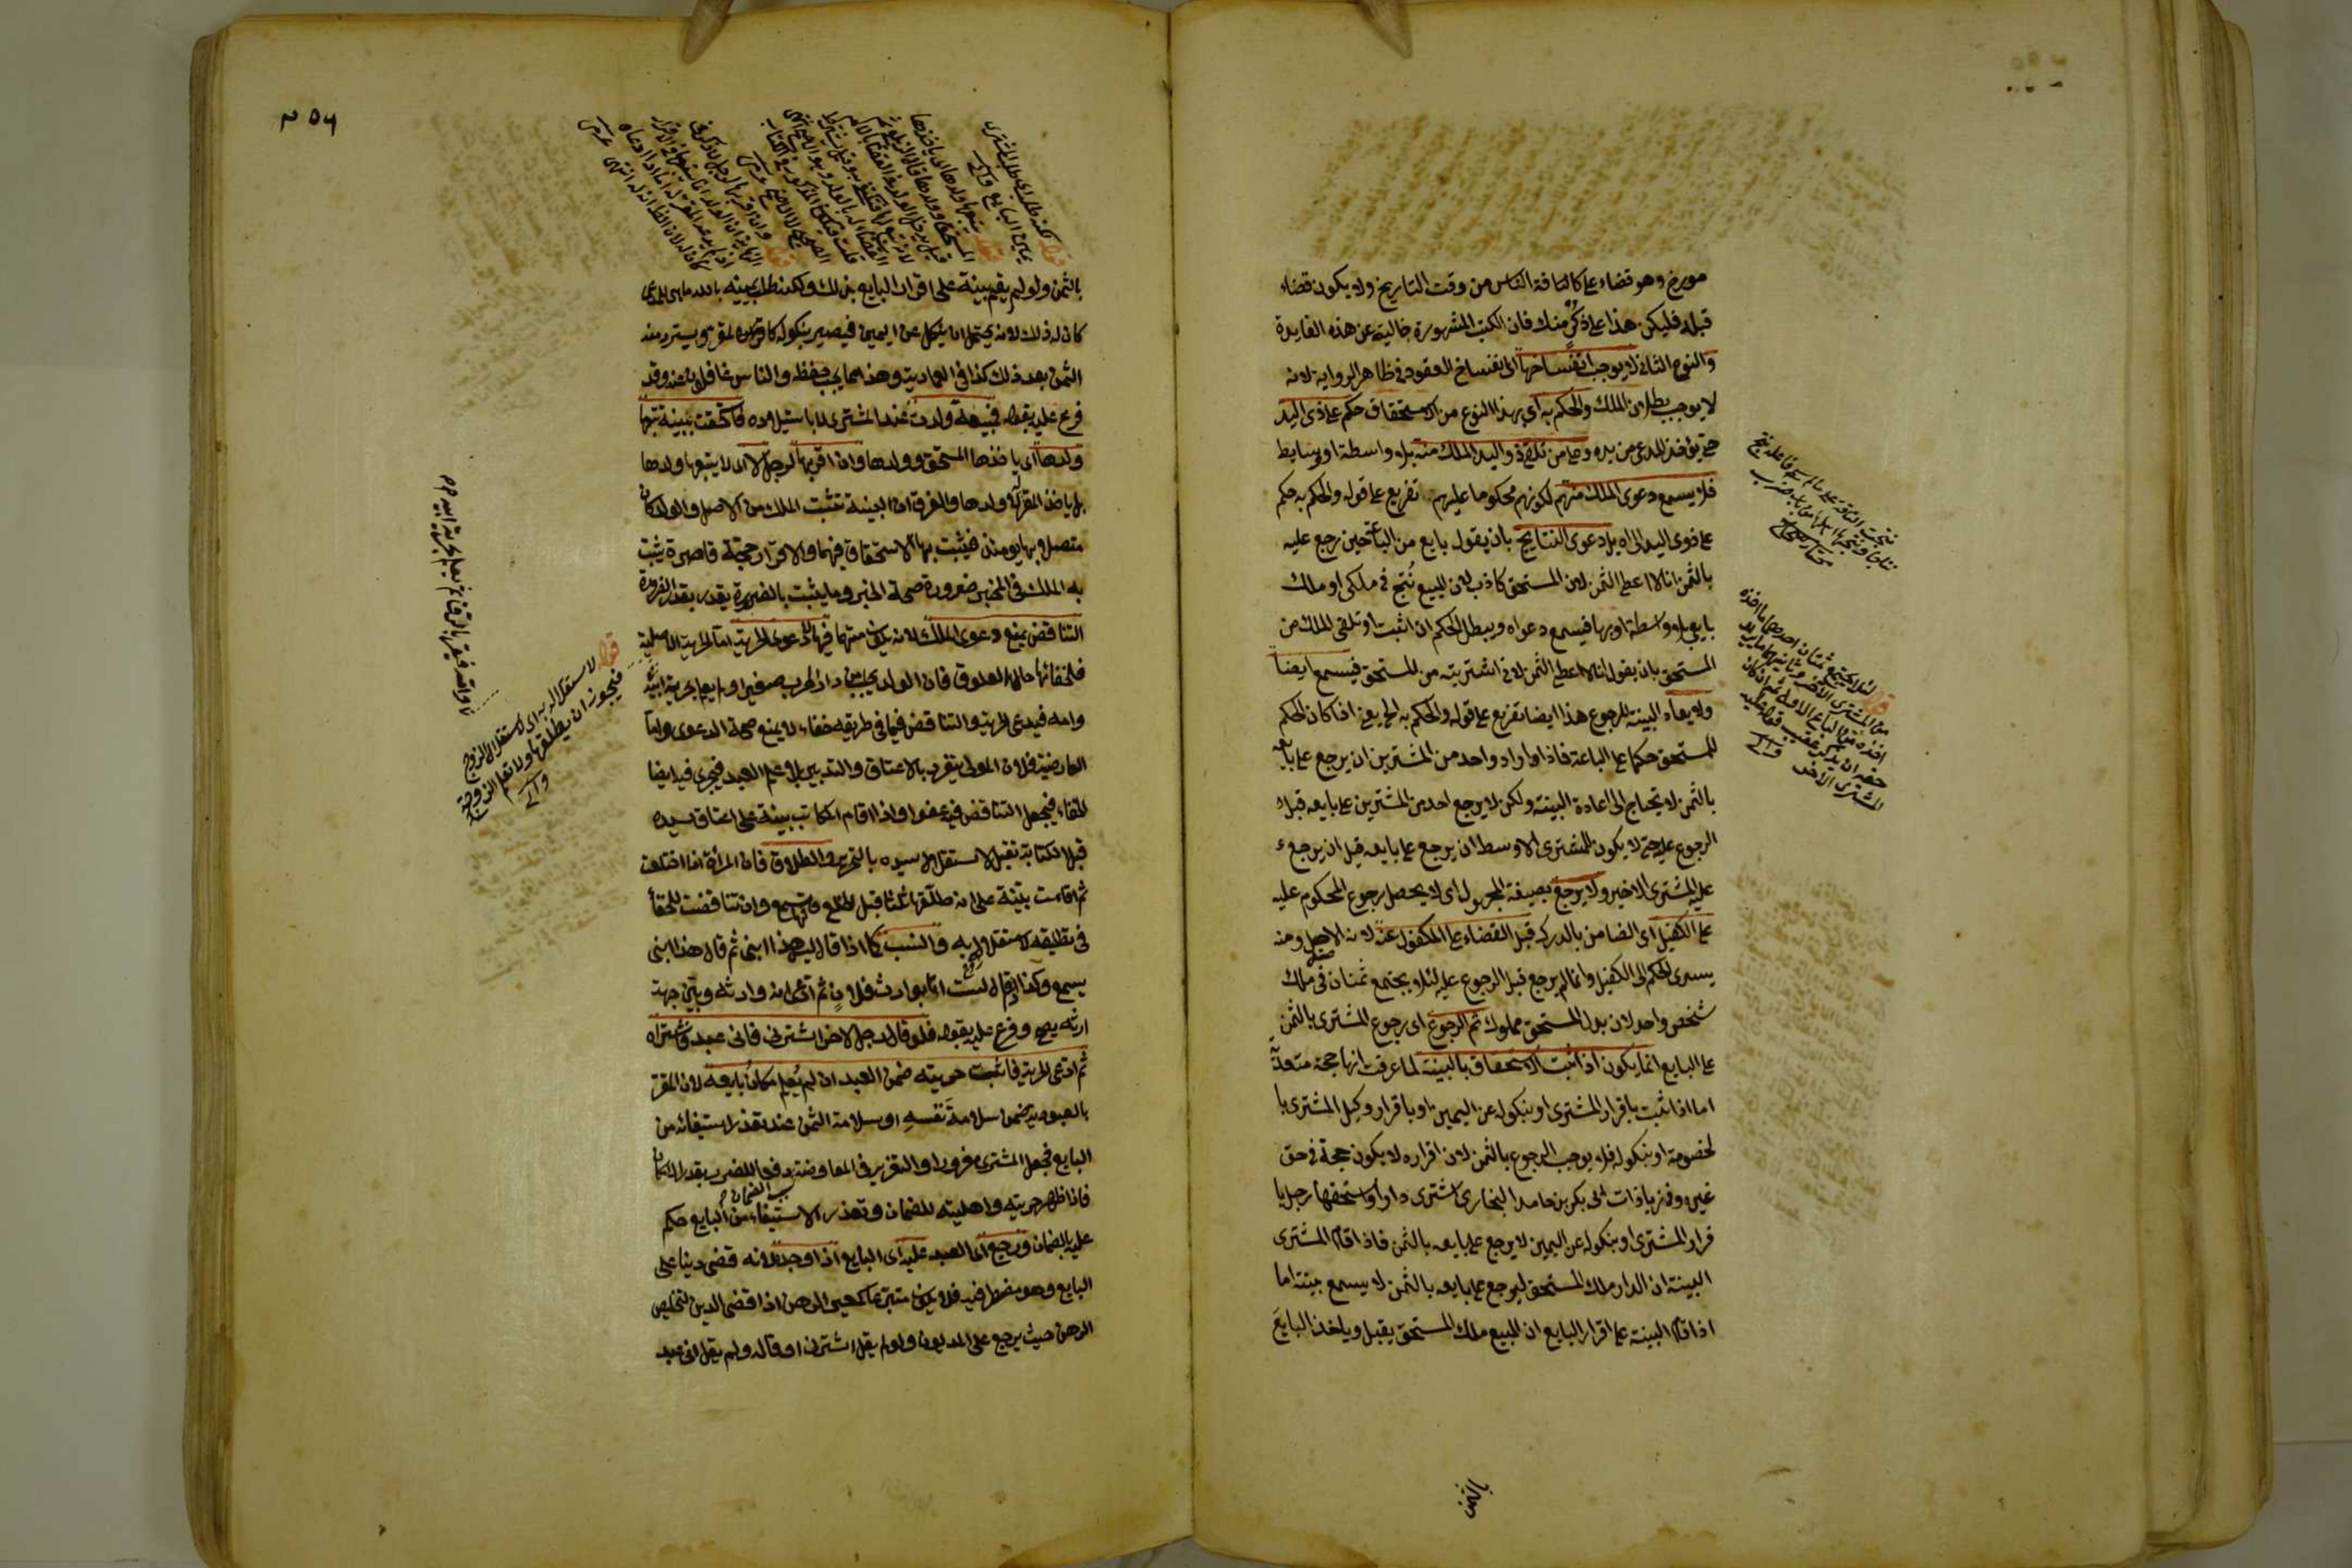 مورخ وهو قضاء على كافة الناس من وقت التاريخ ولا يكون قضاء
قبله فليكن هذا على ذكر منك فان الكتب المشهورة خالية عن هذه الفايدة
والنوع الثاني لا يوجب انفساخها اى انفساخ العقود فى ظاهر الرواية لانه
لا يوجب بطلان الملك والحكم به اى بهذا النوع من الاستحقاق حكم على ذى اليد
حتى يؤخذ المدعى من يده وعلى من تلقى ذو اليد الملك منه بلا واسطة او وسايط
فلا يسمع دعوى الملك منهم لكونهم محكوما عليهم تفريع على قوله والحكم به حكم
على ذوى اليد الى اه بل دعوى النتايج بان يقول بايع من الباعة حين رجع عليه
بالثمن انا لا اعطى الثمن لان المستحق كاذب لان المبيع نُتج فى ملكى او ملك
بايعى بلا واسطة او بها فيسمع دعواه ويبطل الحكم ان اثبت او تلقى الملك من
المستحق بان يقول انا لا اعطى الثمن لانى اشتريته من المستحق فيسمع ايضا
ولا يعاد البينة للرجوع هذا ايضا تفريع على قوله والحكم به الخ يعنى اذا كان الحكم
للمستحق حكما على الباعة فاذا اراد واحد من المشترين ان يرجع على بايعه
بالثمن لا يحتاج الى اعادة البينة ولكن لا يرجع احد من المشترين على بايعه قبل
الرجوع عليه حتى لا يكون للمشترى الاوسط ان يرجع على بايعه قبل ان يرجع
عليه المشترى الاخير ولا يرجع بصيغة المجهول اى لا يحصل رجوع المحكوم عليه
على الكفيل اى الضامن بالدرك قبل القضاء على المكفول عنه لانه الاصل ومنه
يسرى الحكم الى الكفيل وانما لم يرجع قبل الرجوع عليه لئلا يجتمع ثمنان فى ملك
شخص واحد لان بدل المستحق مملوك ثم الرجوع اى رجوع المشترى بالثمن
على البايع انما يكون اذا اثبت الاستحقاق بالبينة لما عرفت انها حجة متعدية
اما اذا ثبت باقرار المشترى او بنكوله عن اليمين او باقرار وكيل المشترى با
لخصومة او بنكوله فلا يوجب الرجوع بالثمن لان اقراره لا يكون حجة فى حق
غيره وفى زيادات ابى بكر بن حامد البخارى اشترى دارا واستحقها رجل با
قرار المشترى او بنكوله عن اليمين لا يرجع على بايعه بالثمن فاذا اقام المشترى
البينة ان الدار ملك المستحق ليرجع على بايعه بالثمن لا يسمع بينته اما
اذا اقام البينة على اقرار البايع ان المبيع ملك المستحق يقبل وياخذ البايع
بالثمن
٢٥٦
بالثمن ولو لم يقم بينة على اقرار البايع بذلك ولكنه طلب يمينه بالله ما هى للمدعى
كان له ذلك لانه يحتمل ان ينكل عن اليمين فيصير بنكوله كاقراره ويسترد منه
الثمن بعد ذلك كذا فى العمادية وهذا مما يجب حفظه والناس عنه غافلون وقد
فرع عليه بقوله مبيعة ولدت عند المشترى لا باستيلاده فاستحقت ببينة تبعها
ولدها اى ياخذها المستحق وولدها وان اقر بها لرجل لا اى لا يتبعها ولدها
بل ياخذ المقر له لا ولدها والفرق ان البينة تثبت الملك من الاصل والولد كان
متصلا بها يومئذ فيثبت بها الاستحقاق فيهما والاقرار حجة قاصرة يثبت
به الملك فى المخبر ضرورة صحة الخبر وما يثبت بالضرورة يقدر بقدر الضرورة
التناقض يمنع دعوى الملك لا دعوى الحرية اما الحرية الاصلية
فلخفاء حال العلوق فان الولد يجلب من دار الحرب صغيرا ولا يعلم بحرية ابيه
وامه فيدعى الحرية والتناقض فيما فى طريقه خفاء لا يمنع صحة الدعوى واما
العارضية فلان المولى يتفرد بالاعتاق والتدبير بلا علم العبد فيجرى فيه ايضا
الخفاء فيجعل التناقض فيه عفوا واذا اقام المكاتب بينة على اعتاق سيده
قبل الكتابة تقبل لاستقلال سيده بالتحرير والطلاق فان المرأة اذا اختلعت
ثم اقامت بينة على انه طلقها ثلثا قبل الخلع تسمع وان تناقضت للخفاء
فى تطليقه لاستقلاله به والنسب كما اذا قال ليس هذا ابنى ثم قال هذا ابنى
يسمع وكذا اذا قال لست انا بوارث فلان ثم ادعى انه وارثه وبين جهة
ارثه يصح وفرع عليه بقوله فلو قال رجل لاخر اشترنى فانى عبد فاشتراه
ثم ادعى الحرية فاثبت حريته ضمن العبد ان لم يُعلم مكان بايعه لان المقر
بالعبودية ضمن سلامة نفسه او سلامة الثمن عند تعذر استيفائه من
البايع فجعل المشترى مغرورا والتغرير فى المعاوضة دفعا للضرر بقدر الامكان
فاذا ظهر حريته واهليته للضمان وتعذر الاستيفاء من البايع حكم
عليه بالضمان ورجع اى العبد عليه اى البايع اذا وجده لانه قضى دينا على
البايع وهو مضطر فيه فلا يكون متبرعا كمعير الرهن اذا قضى الدين لتخليص
الرهن حيث يرجع على المديون ولو لم يقل اشترنى او قاله ولم يقل انى عبد
قوله لاستقلاله به اى لاستقلال الزوج
فيجوز ان يطلقها ولا تعلم الزوجة